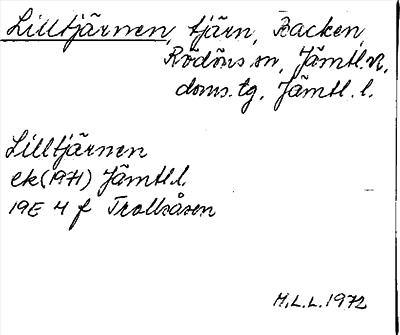 Lilltjärnen, tjärn, Backen,
Rödöns sn, Jämtl. n.
doms. tg, Jämtl. l.
Lilltjärnen
ek (1971) Jämtl. l.
19E 4 f Trollsåsen
M.L.L. 1972